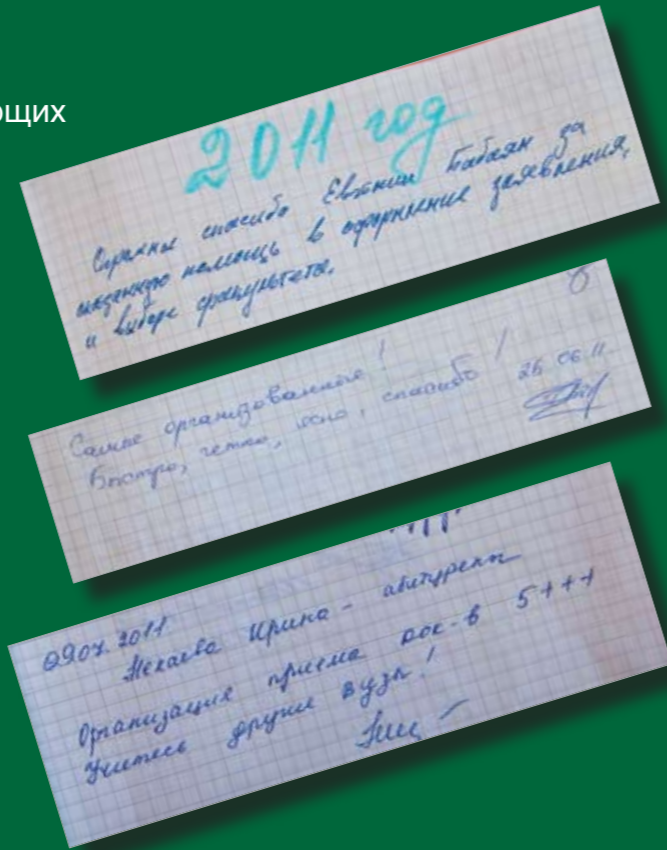 ющих
2011 год
Огромное спасибо Евгении Бабаян за
оказанную помощь в оформление заявления,
и выборе факультета.
Самые организованные!
Быстро, четко, ясно, спасибо! 26 06.11.
09.07.2011.
Ирина - абитуриент
Организация приема док-в 5+++
Учитесь другие вузы!